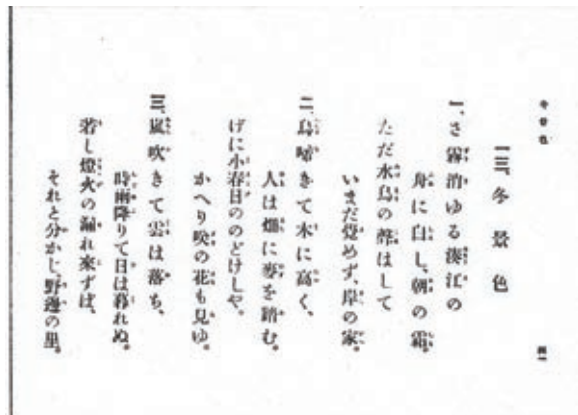 冬景色
一三、冬景色
一、さ霧消ゆる湊江の
舟に白し、朝の霜。
ただ水鳥の聲はして
いまだ覺めず、岸の家。
二、烏啼きて木に高く、
人は畑に麥を踏む。
げに小春日ののどけしや。
かへり咲の花も見ゆ。
三、嵐吹きて雲は落ち、
時雨降りて日は暮れぬ。
若し燈火の漏れ來ずば、
それと分かじ、野邊の里。